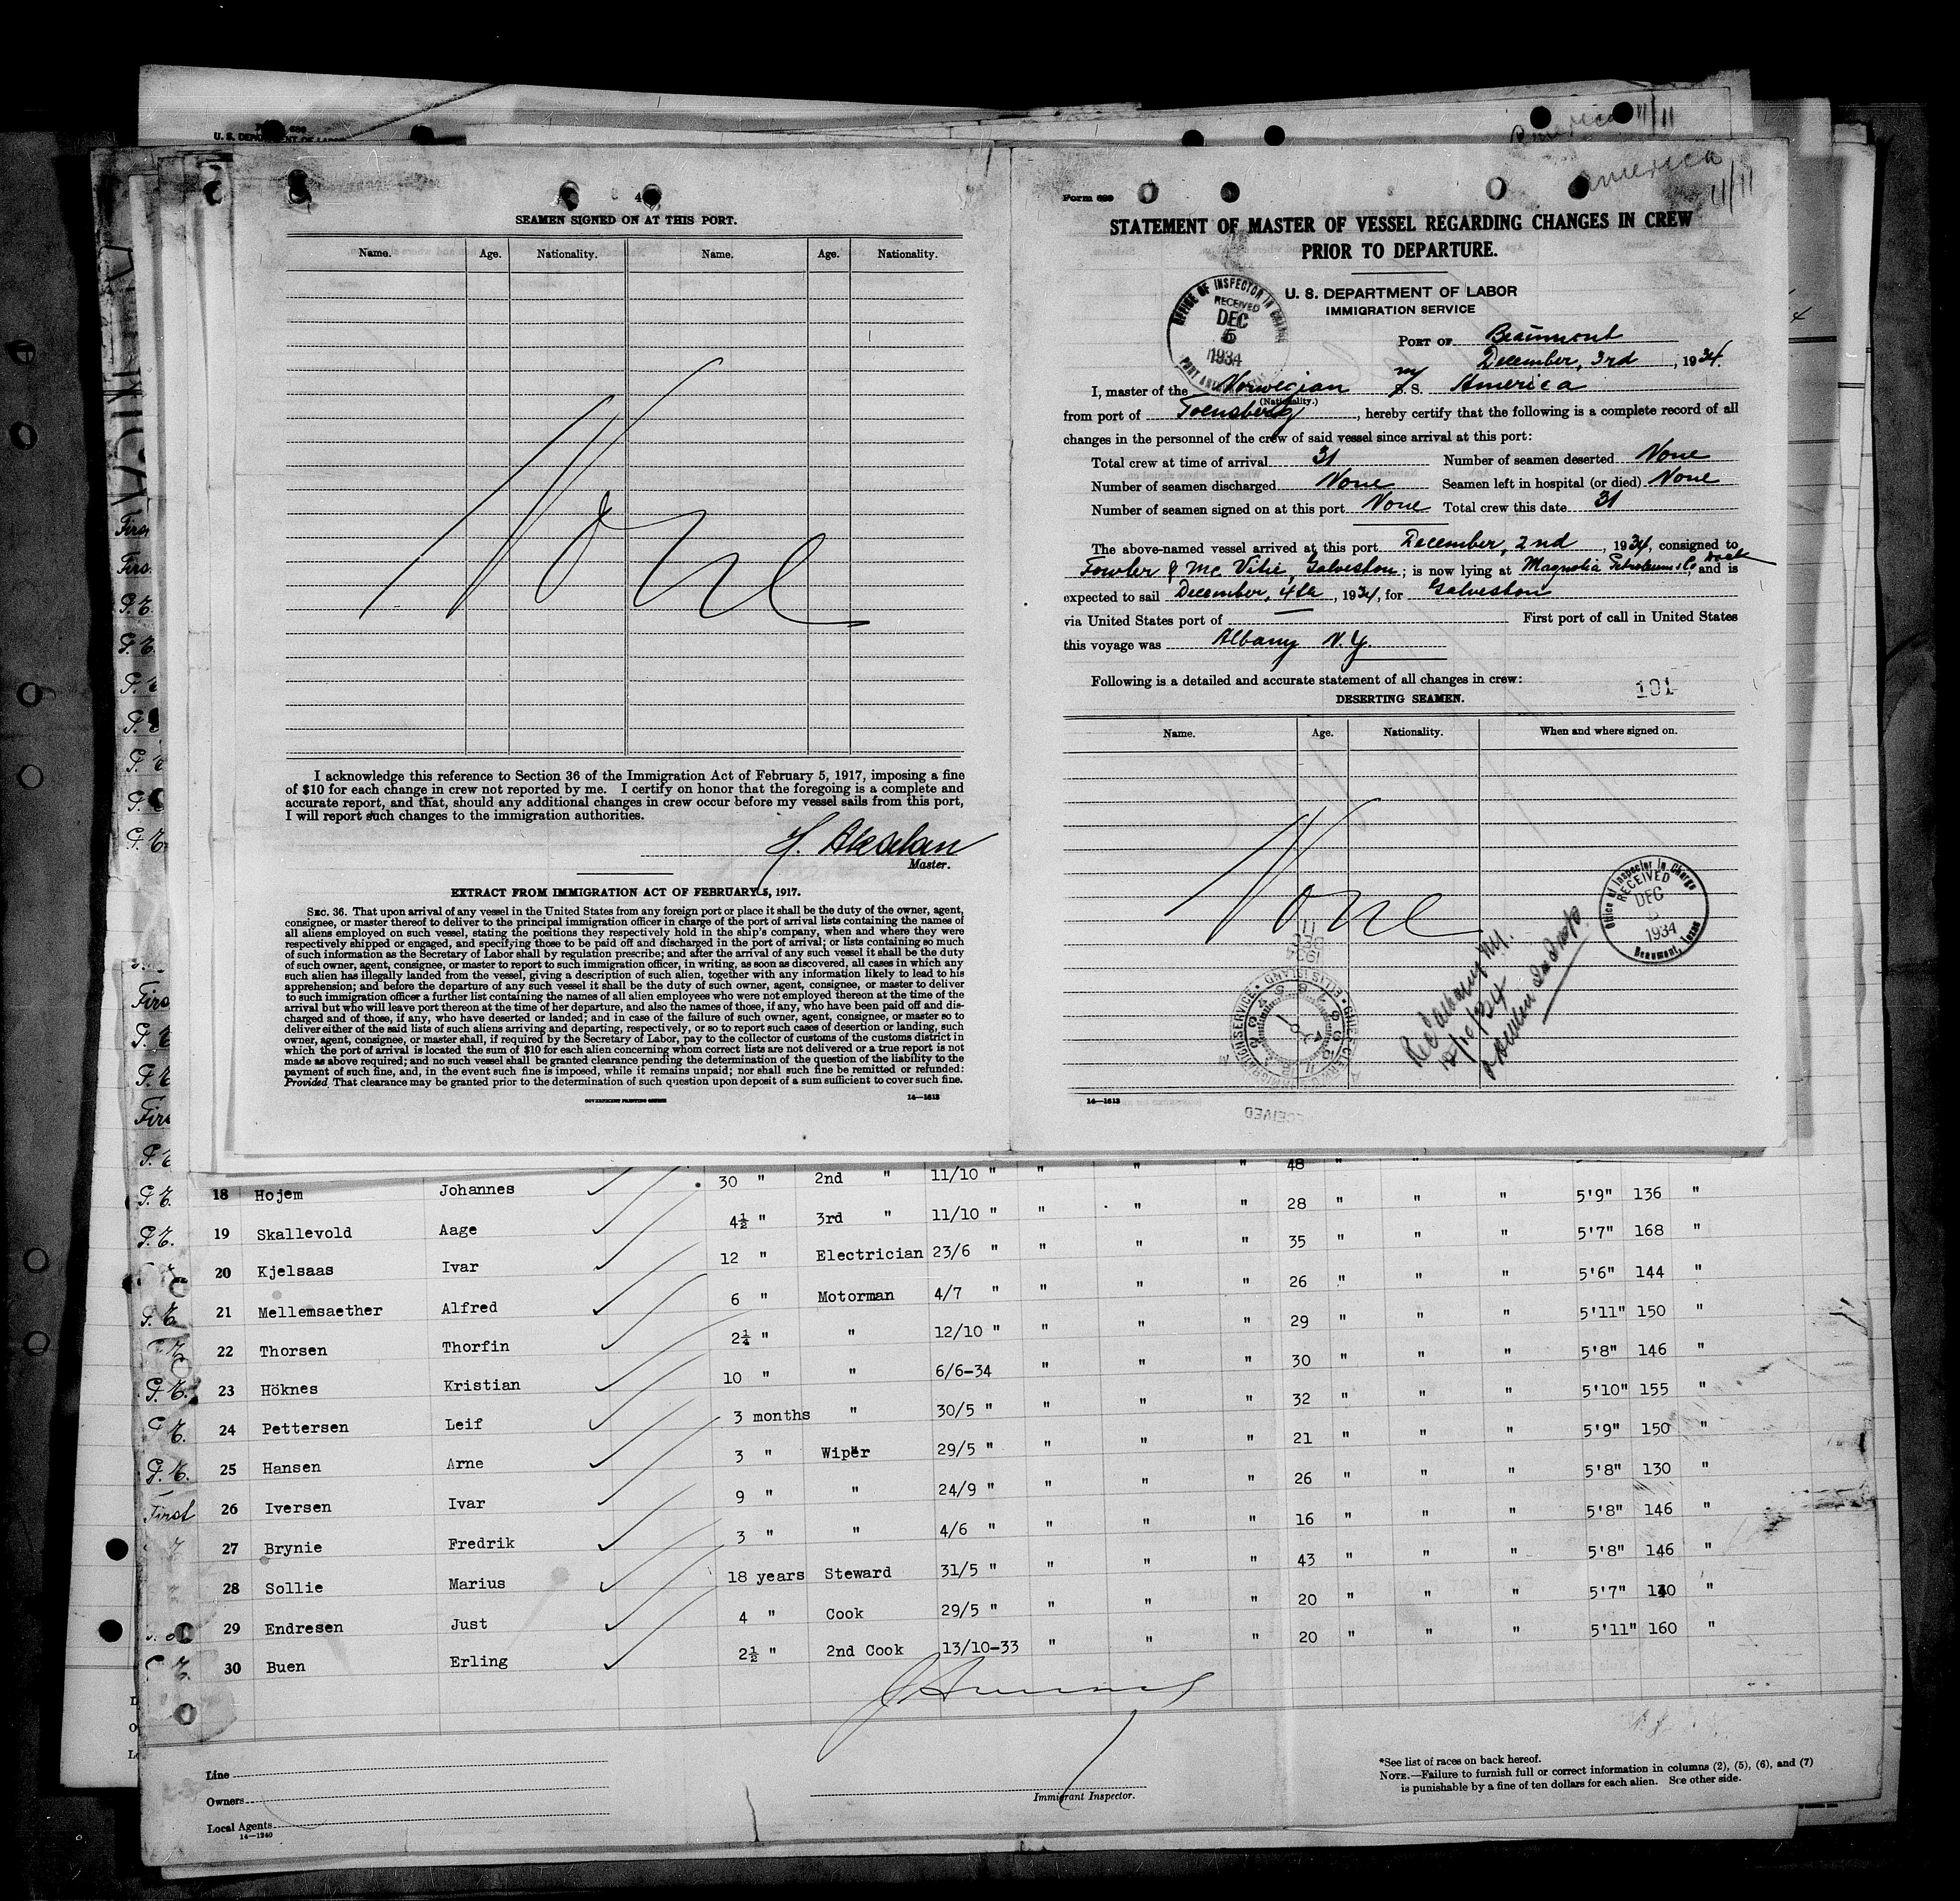 U. S. DEPARTMENT OF LABOR
America 11/11
4
SEAMEN SIGNED ON AT THIS PORT.
Name. Age. Nationality. Name. Age. Nationality.
None
I acknowledge this reference to Section 36 of the Immigration Act of February 5, 1917, imposing a fine
of $10 for each change in crew not reported by me. I certify on honor that the foregoing is a complete and
accurate report, and that, should any additional changes in crew occur before my vessel sails from this port,
I will report such changes to the immigration authorities.
Master.
EXTRACT FROM IMMIGRATION ACT OF FEBRUARY 5, 1917.
SEC. 36. That upon arrival of any vessel in the United States from any foreign port or place it shall be the duty of the owner, agent,
consignee, or master thereof to deliver to the principal immigration officer in charge of the port of arrival lists containing the names of
all aliens employed on such vessel, stating the positions they respectively hold in the ship's company, when and where they were
respectively shipped or engaged, and specifying those to be paid off and discharged in the port of arrival; or lists containing so much
of such information as the Secretary of Labor shall by regulation prescribe; and after the arrival of any such vessel it shall be the duty
of such owner, agent, consignee, or master to report to such immigration officer, in writing, as soon as discovered, all cases in which any
such alien has illegally landed from the vessel, giving a description of such alien, together with any information likely to lead to his
apprehension; and before the departure of any such vessel it shall be the duty of such owner, agent, consignee, or master to deliver
to such immigration officer a further list containing the names of all alien employees who were not employed thereon at the time of the
arrival but who will leave port thereon at the time of her departure, and also the names of those, if any, who have been paid off and dis-
charged and of those, if any, who have deserted or landed; and in case of the failure of such owner, agent, consignee, or master so to
deliver either of the said lists of such aliens arriving and departing, respectively, or so to report such cases of desertion or landing, such
owner, agent, consignee, or master shall, if required by the Secretary of Labor, pay to the collector of customs of the customs district in
which the port of arrival is located the sum of $10 for each alien concerning whom correct lists are not delivered or a true report is not
made as above required; and no such vessel shall be granted clearance pending the determination of the question of the liability to the
payment of such fine, and, in the event such fine is imposed, while it remains unpaid; nor shall such fine be remitted or refunded:
Provided That clearance may be granted prior to the determination of such question upon deposit of a sum sufficient to cover such fine.
GOVERNMENT PRINTING OFFICE 14—1613
America 11/11
Form 689
STATEMENT OF MASTER OF VESSEL REGARDING CHANGES IN CREW
PRIOR TO DEPARTURE.
U. S. DEPARTMENT OF LABOR
IMMIGRATION SERVICE
OFFICE OF INSPECTOR IN CHARGE
RECEIVED
DEC
5
1934
PORT OF Beaumont
December, 3rd, 1934.
I, master of the Norwegian m/S. S. America
(Nationality.)
from port of Toensberg, hereby certify that the following is a complete record of all
changes in the personnel of the crew of said vessel since arrival at this port:
Total crew at time of arrival 31 Number of seamen deserted None
Number of seamen discharged None Seamen left in hospital (or died) None
Number of seamen signed on at this port None Total crew this date 31
The above-named vessel arrived at this port December, 2nd, 1934, consigned to
Fowler & Mc Vitie, Galveston; is now lying at Magnolia Petroleum Co Dock, and is
expected to sail December, 4th, 1934, for Galveston
via United States port of — First port of call in United States
this voyage was Albany N.Y.
Following is a detailed and accurate statement of all changes in crew:
101
DESERTING SEAMEN.
Name. Age. Nationality. When and where signed on.
None
Office of Inspector in Charge
RECEIVED
DEC
1934
Beaumont, Texas
11
DEC
1934
ELLIS ISLAND
RECEIVED
14—1613
48
18 Hojem Johannes 30 " 2nd " 11/10 " " " " 28 " " " 5'9" 136 "
19 Skallevold Aage 4½ " 3rd " 11/10 " " " " 35 " " " 5'7" 168 "
20 Kjelsaas Ivar 12 " Electrician 23/6 " " " " 26 " " " 5'6" 144 "
21 Mellemsaether Alfred 6 " Motorman 4/7 " " " " 29 " " " 5'11" 150 "
22 Thorsen Thorfin 2¼ " " 12/10 " " " " 30 " " " 5'8" 146 "
23 Höknes Kristian 10 " " 6/6-34 " " " 32 " " " 5'10" 155 "
24 Pettersen Leif 3 months " 30/5 " " " " 21 " " " 5'9" 150 "
25 Hansen Arne 3 " Wiper 29/5 " " " " 26 " " " 5'8" 130 "
26 Iversen Ivar 9 " " 24/9 " " " " 16 " " " 5'8" 146 "
27 Brynie Fredrik 3 " " 4/6 " " " " 43 " " " 5'8" 146 "
28 Sollie Marius 18 years Steward 31/5 " " " " 20 " " " 5'7" 140 "
29 Endresen Just 4 " Cook 29/5 " " " " 20 " " " 5'11" 160 "
30 Buen Erling 2½ " 2nd Cook 13/10-33 " " "
Line
Owners
Local Agents
14—1240
Immigrant Inspector.
*See list of races on back hereof.
NOTE.—Failure to furnish full or correct information in columns (2), (5), (6), and (7)
is punishable by a fine of ten dollars for each alien. See other side.